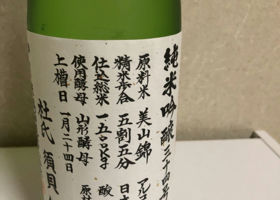 純米吟醸三十四号
原料米 美山錦 アル
精米歩合 五割五分 日本
仕込総米 一五〇〇kg 酸
使用酵母 山形酵母 原
上槽日 一月二十四日
杜氏 須貝